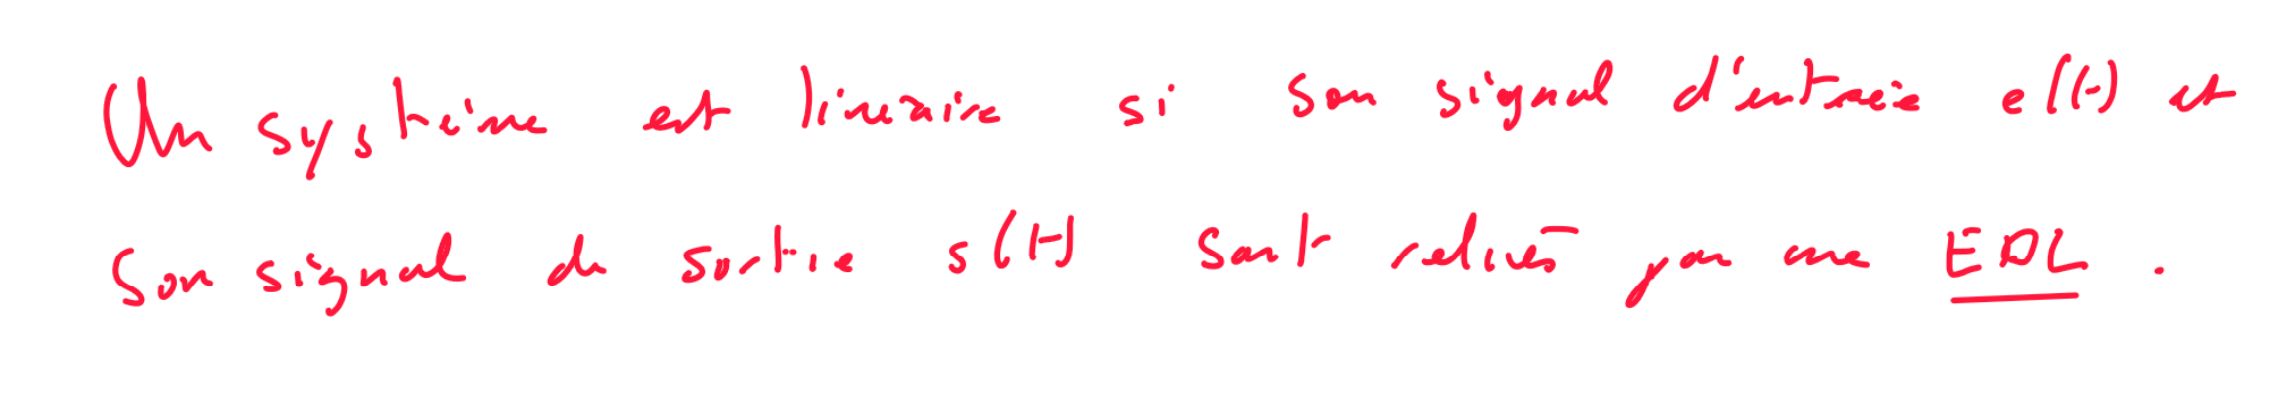 Un système est linéaire si son signal d'entrée e(t) et
son signal de sortie s(t) sont reliés par une EDL.